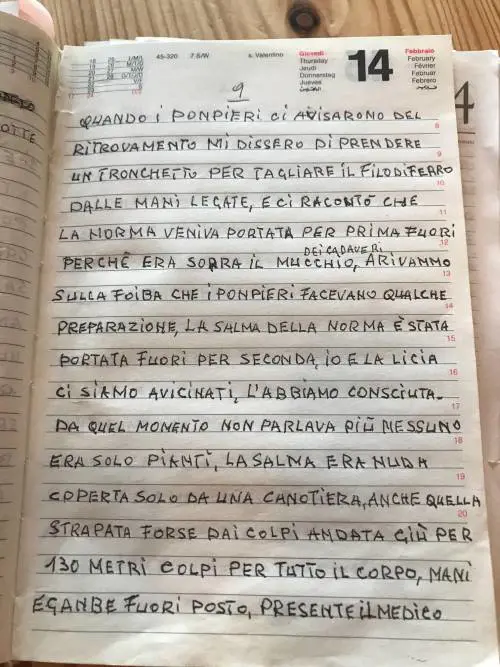 45-320 7.S/W s. Valentino Giovedì 14 Febbraio
Thursday February
Jeudi Février
Donnerstag Februar
Jueves Febrero
9
QUANDO I PONPIERI CI AVISARONO DEL
8
RITROVAMENTO MI DISSERO DI PRENDERE
9
UN TRONCHETTO PER TAGLIARE IL FILO DI FERRO
10
DALLE MANI LEGATE, E CI RACONTÒ CHE
11
LA NORMA VENIVA PORTATA PER PRIMA FUORI
12
DEI CADAVERI
PERCHÉ ERA SOPRA IL MUCCHIO, ARIVAMMO
13
SULLA FOIBA CHE I PONPIERI FACEVANO QUALCHE
14
PREPARAZIONE, LA SALMA DELLA NORMA È STATA
15
PORTATA FUORI PER SECONDA, IO E LA LICIA
16
CI SIAMO AVICINATI, L'ABBIAMO CONSCIUTA.
17
DA QUEL MONENTO NON PARLAVA PIÙ NESSUNO
18
ERA SOLO PIANTI, LA SALMA ERA NUDA
19
COPERTA SOLO DA UNA CANOTIERA, ANCHE QUELLA
20
STRAPATA FORSE DAI COLPI ANDATA GIÙ PER
130 METRI COLPI PER TUTTO IL CORPO, MANI
E GANBE FUORI POSTO, PRESENTE IL MEDICO